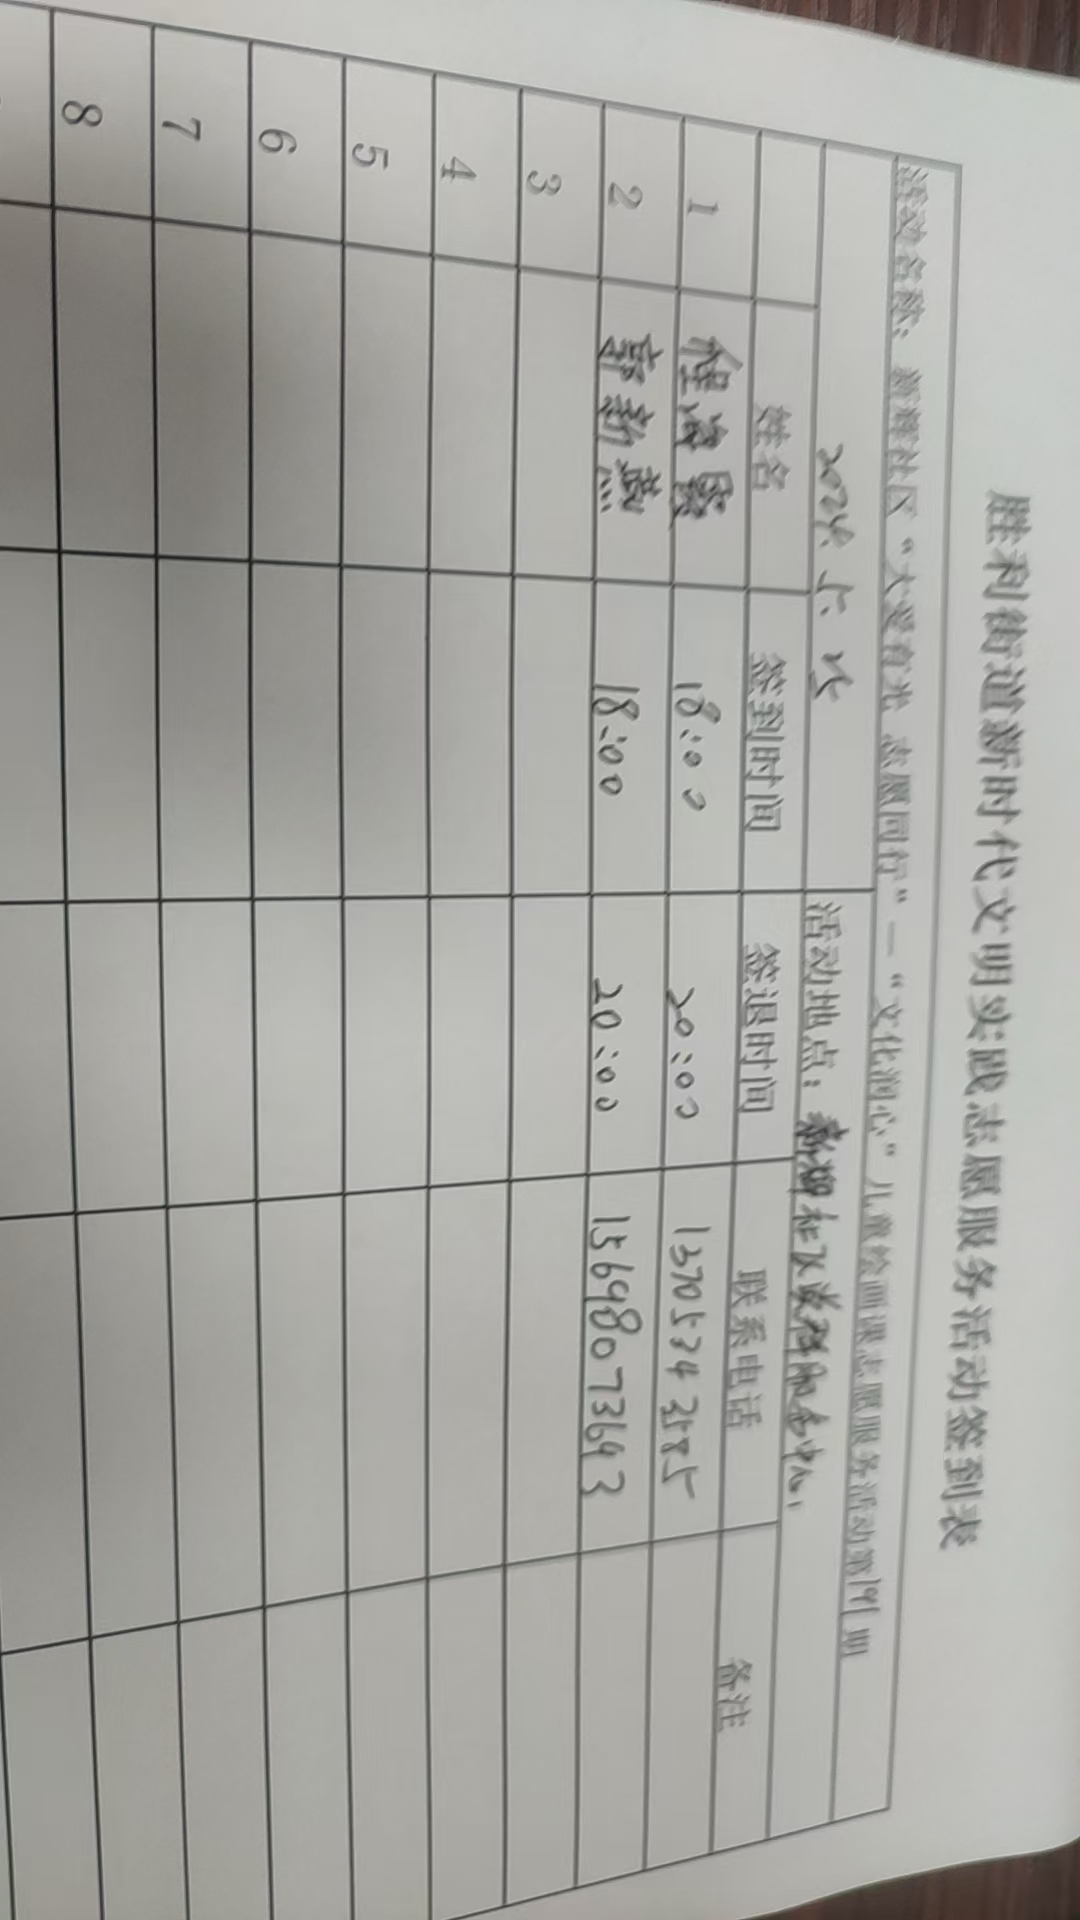 胜利街道新时代文明实践志愿服务活动签到表
活动名称：新辉社区“大爱有光 志愿同行”—“文化润心”儿童绘画课志愿服务活动第 期
2024. 5. 活动地点：社区党群服务中心
姓名 签到时间 签退时间 联系电话 备注
1 18:00 20:00
2 郭新燕 18:00 20:00 15698073693
3
4
5
6
7
8